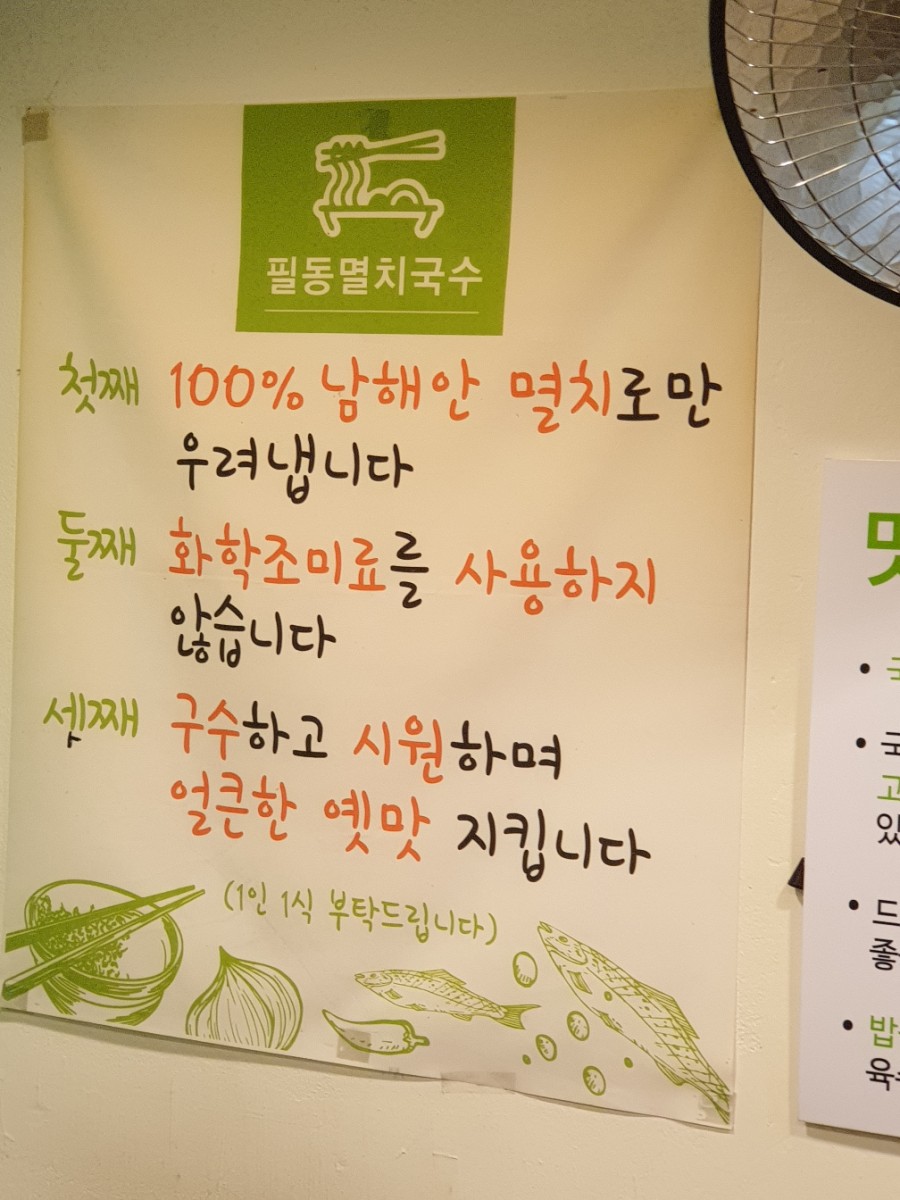 필동멸치국수
첫째 100% 남해안 멸치로만
우려냅니다
둘째 화학조미료를 사용하지
않습니다
셋째 구수하고 시원하며
얼큰한 옛맛 지킵니다
(1인 1식 부탁드립니다)
고
있
드
좋
밥
육수